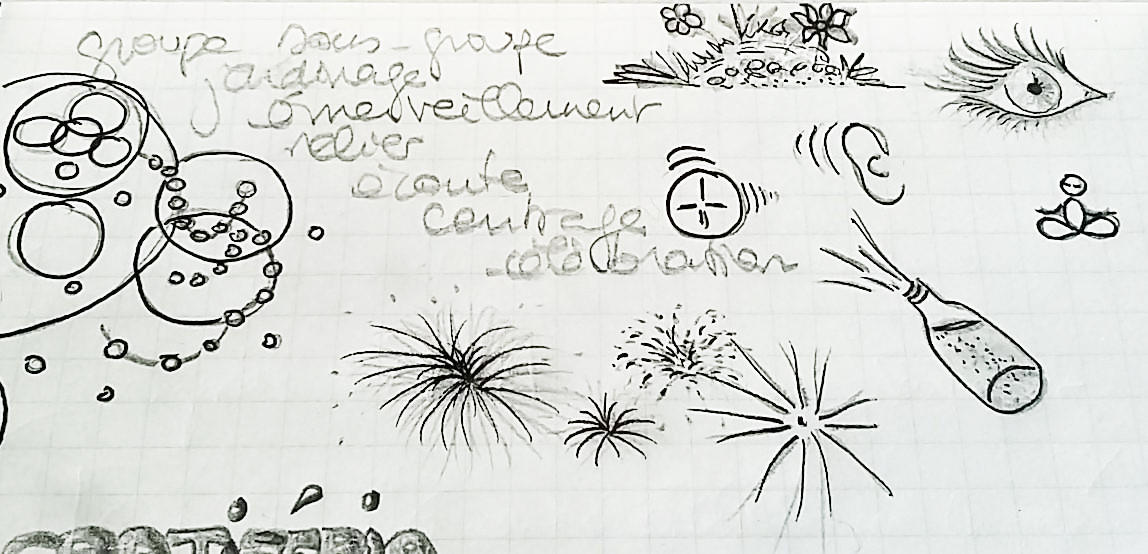 groupe sous-groupe
jardinage
émerveillement
relier
écoute
centrage
célébration